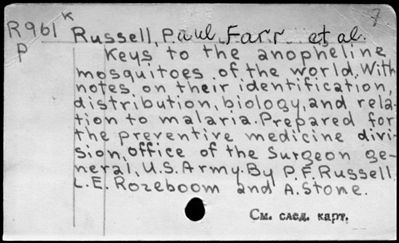 7
R961 K Russell, Paul Farr et al.
P Keys to the anopheline
mosquitoes of the world. With
notes on their identification,
distribution, biology, and rela-
tion to malaria. Prepared for
the preventive medicine divi-
sion, office of the Surgeon ge-
neral, U.S. Army. By P.F. Russell
L.E. Rozeboom and A. Stone.
См. след. карт.